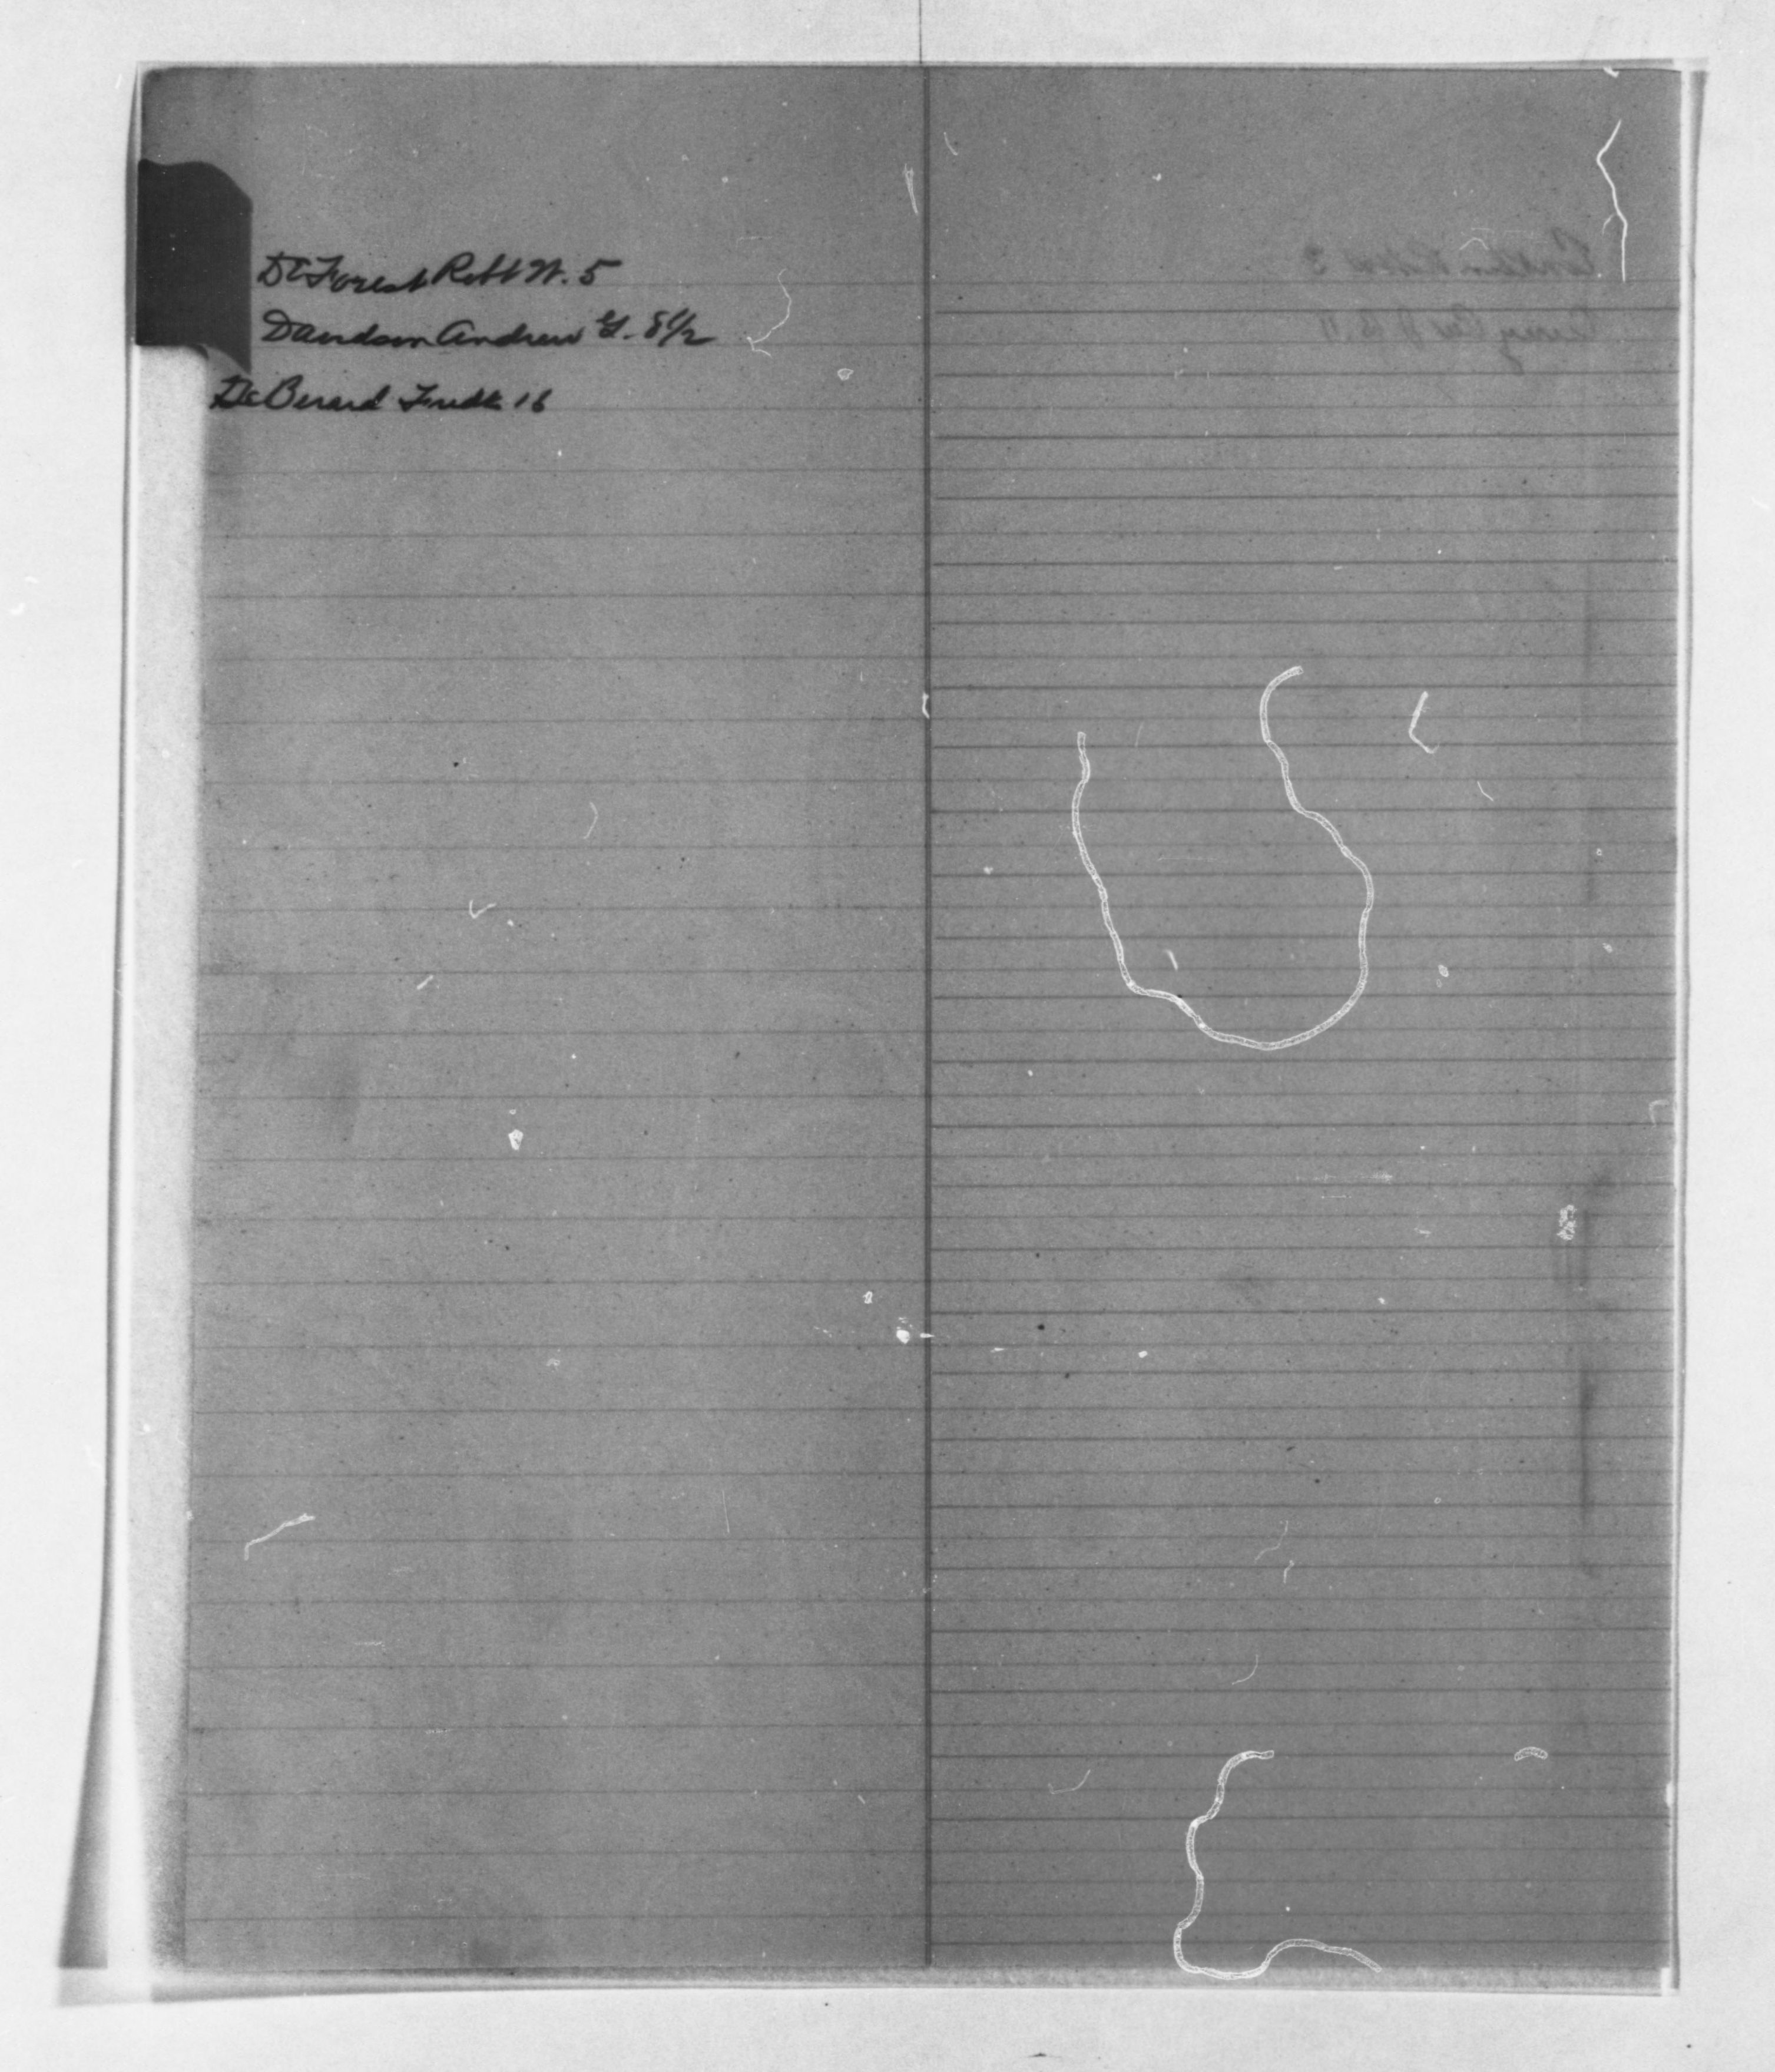 DeForest Robt W. 5
Davidson Andrew G. 8 1/2
De Berard Fredk 16